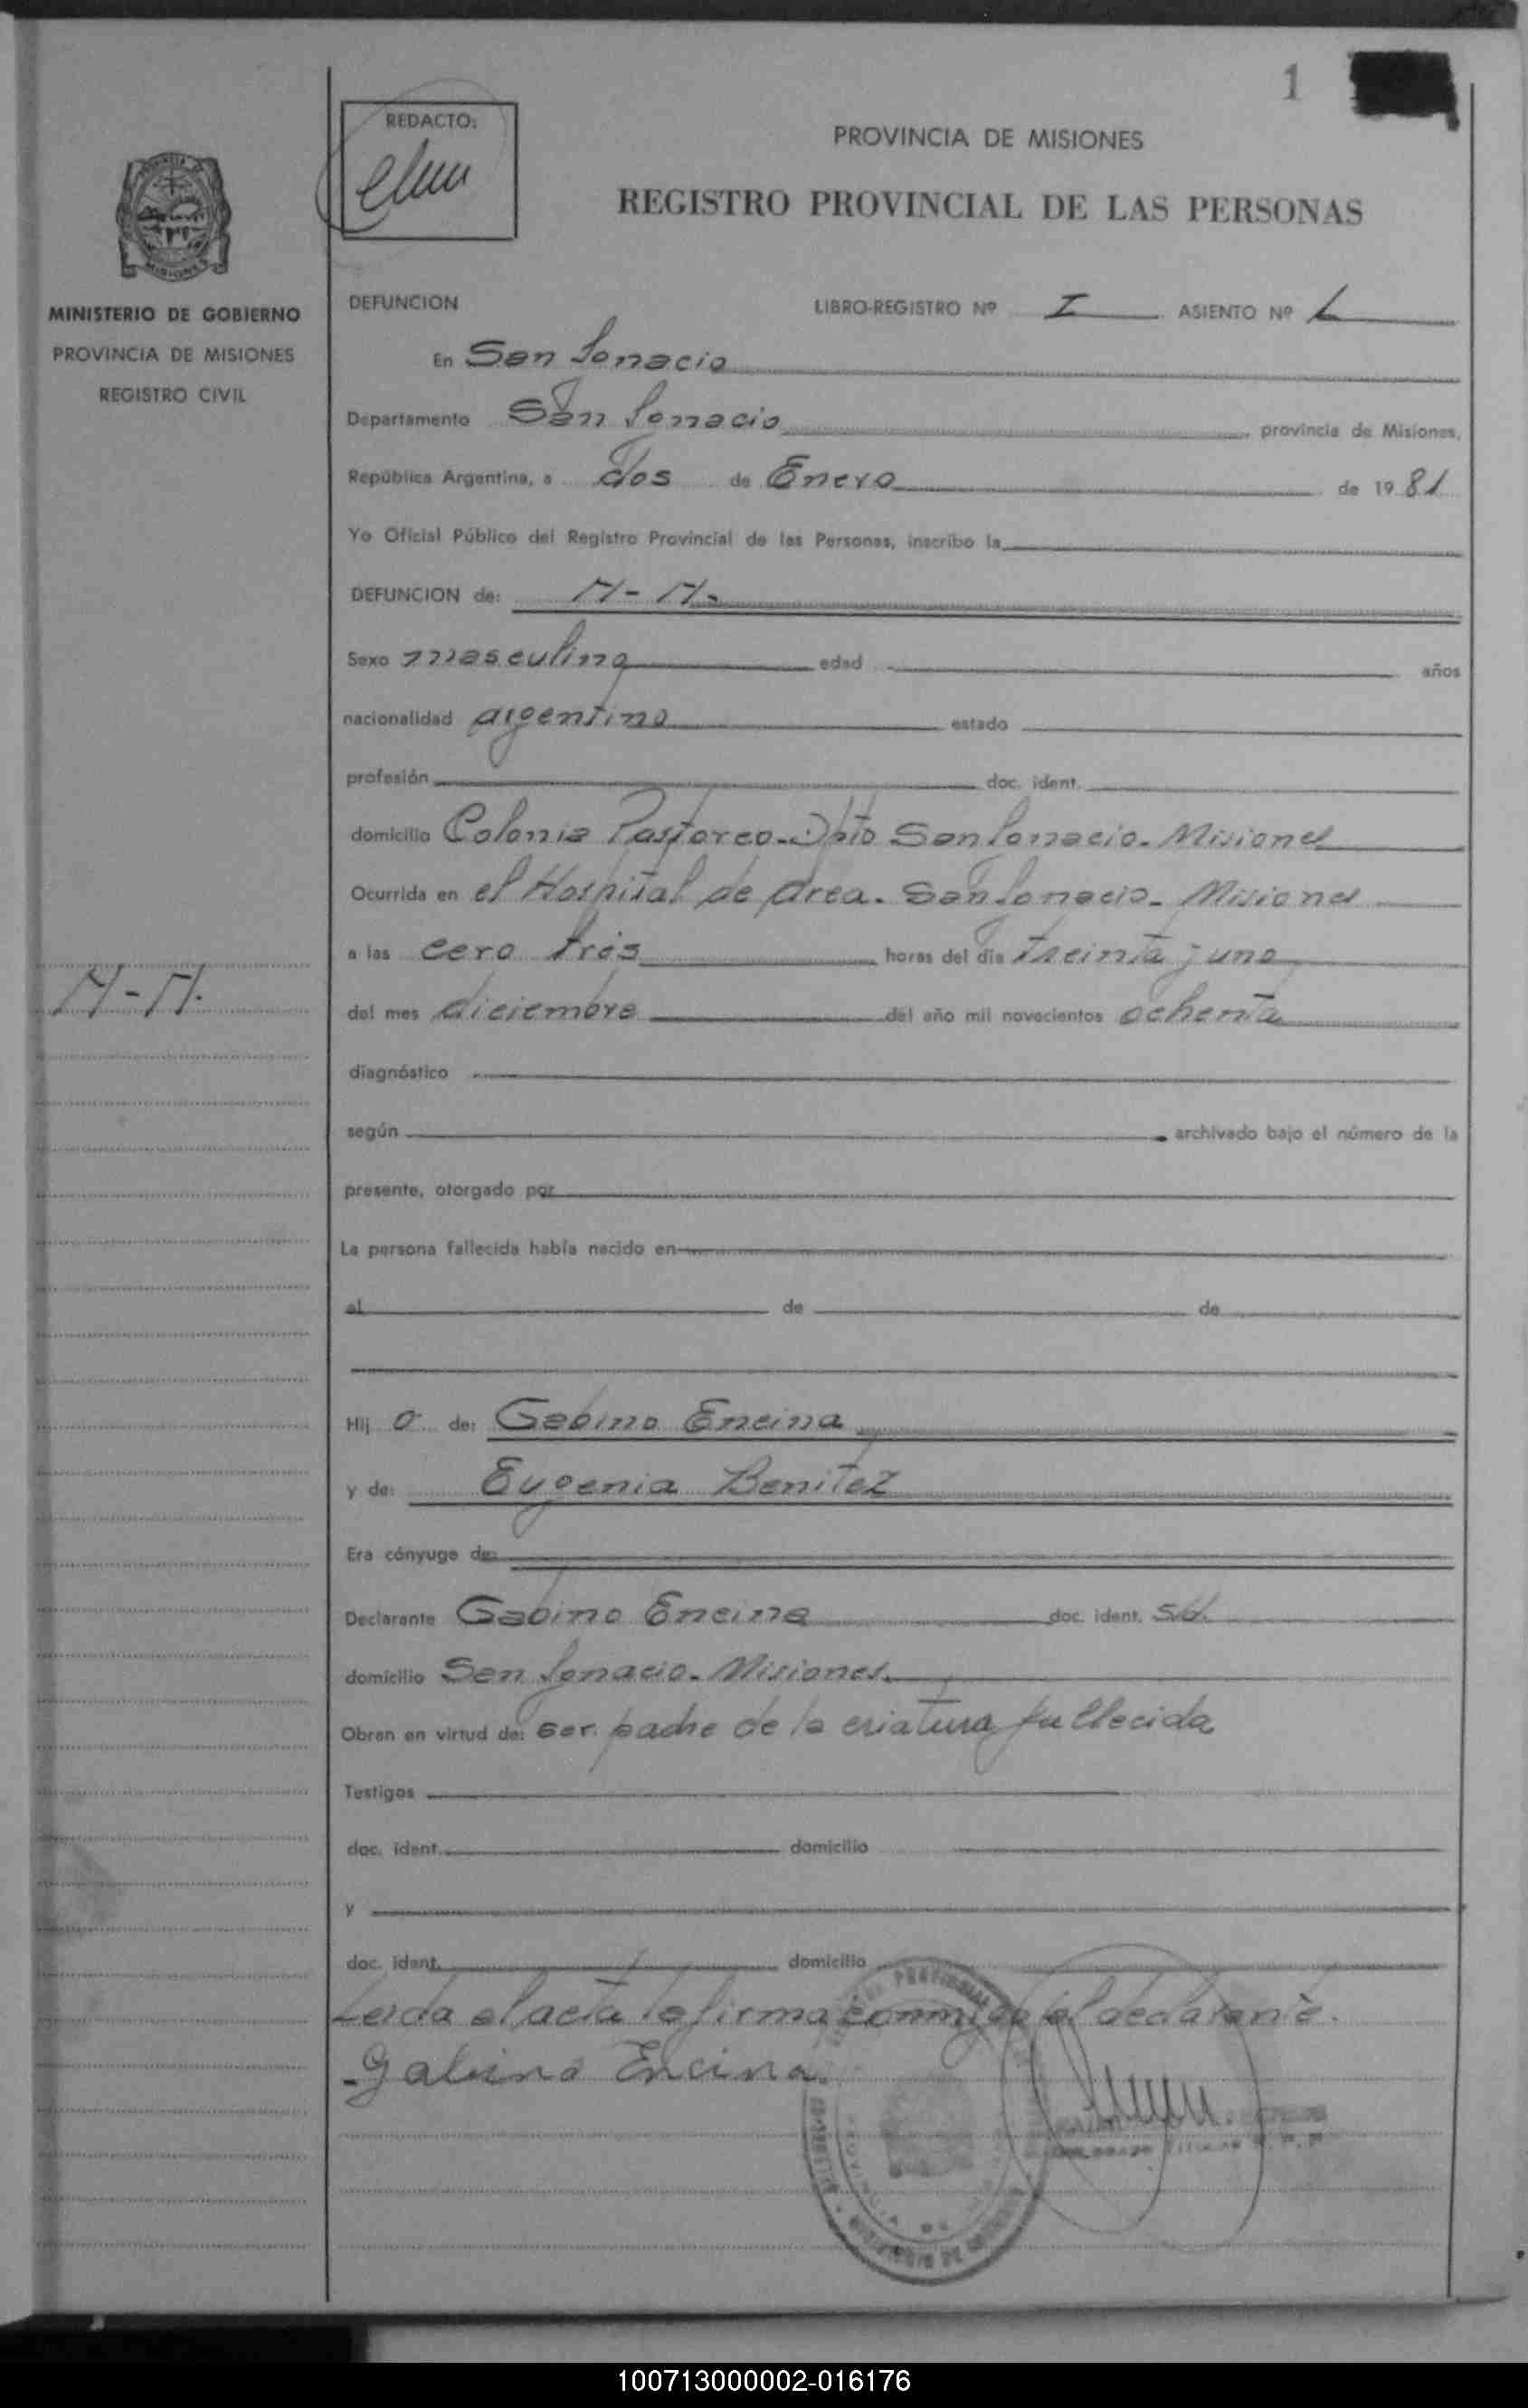 1
REDACTO:
PROVINCIA DE MISIONES
REGISTRO PROVINCIAL DE LAS PERSONAS
MINISTERIO DE GOBIERNO
PROVINCIA DE MISIONES
REGISTRO CIVIL
DEFUNCION LIBRO-REGISTRO Nº I ASIENTO Nº 1
En San Ignacio
Departamento San Ignacio provincia de Misiones,
República Argentina, a dos de Enero de 1981
Yo Oficial Público del Registro Provincial de las Personas, inscribo la
DEFUNCION de: N-N.
Sexo masculino edad años
nacionalidad argentino estado
profesión doc. ident.
domicilio Colonia Pastoreo-Dpto San Ignacio-Misiones
Ocurrida en el Hospital de Area. San Ignacio-Misiones
a las cero tres horas del día treinta y uno
N-N.
del mes diciembre del año mil novecientos ochenta
diagnóstico
según archivado bajo el número de la
presente, otorgado por
La persona fallecida había nacido en
el de de
Hij o de: Gabino Encina
y de: Eugenia Benitez
Era cónyuge de:
Declarante Gabino Encina doc. ident. S/d.
domicilio San Ignacio-Misiones.
Obran en virtud de: ser padre de la criatura fallecida
Testigos
doc. ident. domicilio
y
doc. ident. domicilio
Leida el acta la firma conmigo el declarante.
-Gabino Encina.
MINISTERIO DE GOBIERNO
100713000002-016176